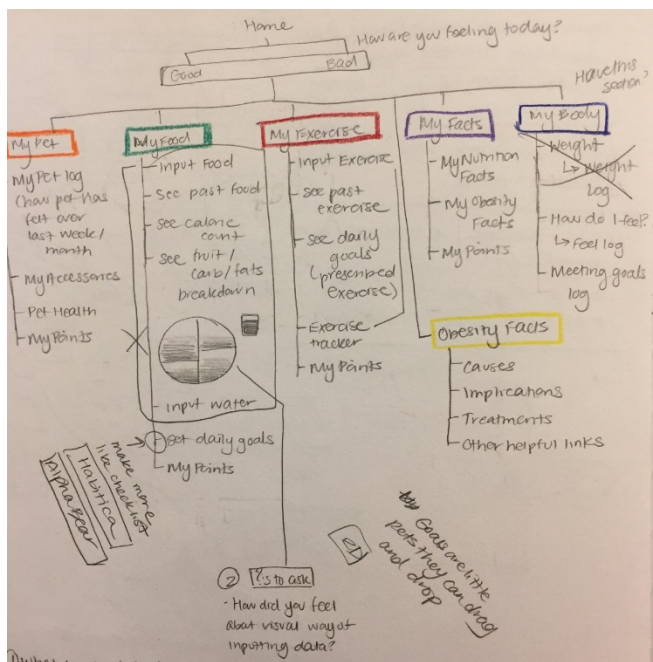 Home
How are you feeling today?
Good Bad
Have this
section?
My Pet
My Pet log
(how pet has
felt over
last week/
month
- My Accessories
- Pet Health
- My Points
My Food
- Input Food
- See past food
- see calorie
count
- see fruit/
carb/fats
breakdown
- input water
- set daily goals
- My Points
make more
like checklist
Habitica
AlphaBear
My Exercise
- Input Exercise
- see past
exercise
- see daily
goals
(prescribed
exercise)
- Exercise
tracker
- My Points
My Facts
- My Nutrition
Facts
- My Obesity
Facts
- My Points
My Body
- Weight
↳ Weight
Log
- How do I feel?
↳ Feel log
- Meeting goals
log
Obesity Facts
- Causes
- Implications
- Treatments
- Other helpful links
Goals are little
pets they can drag
and drop
② ?s to ask
- How did you feel
about visual way of
inputting data?